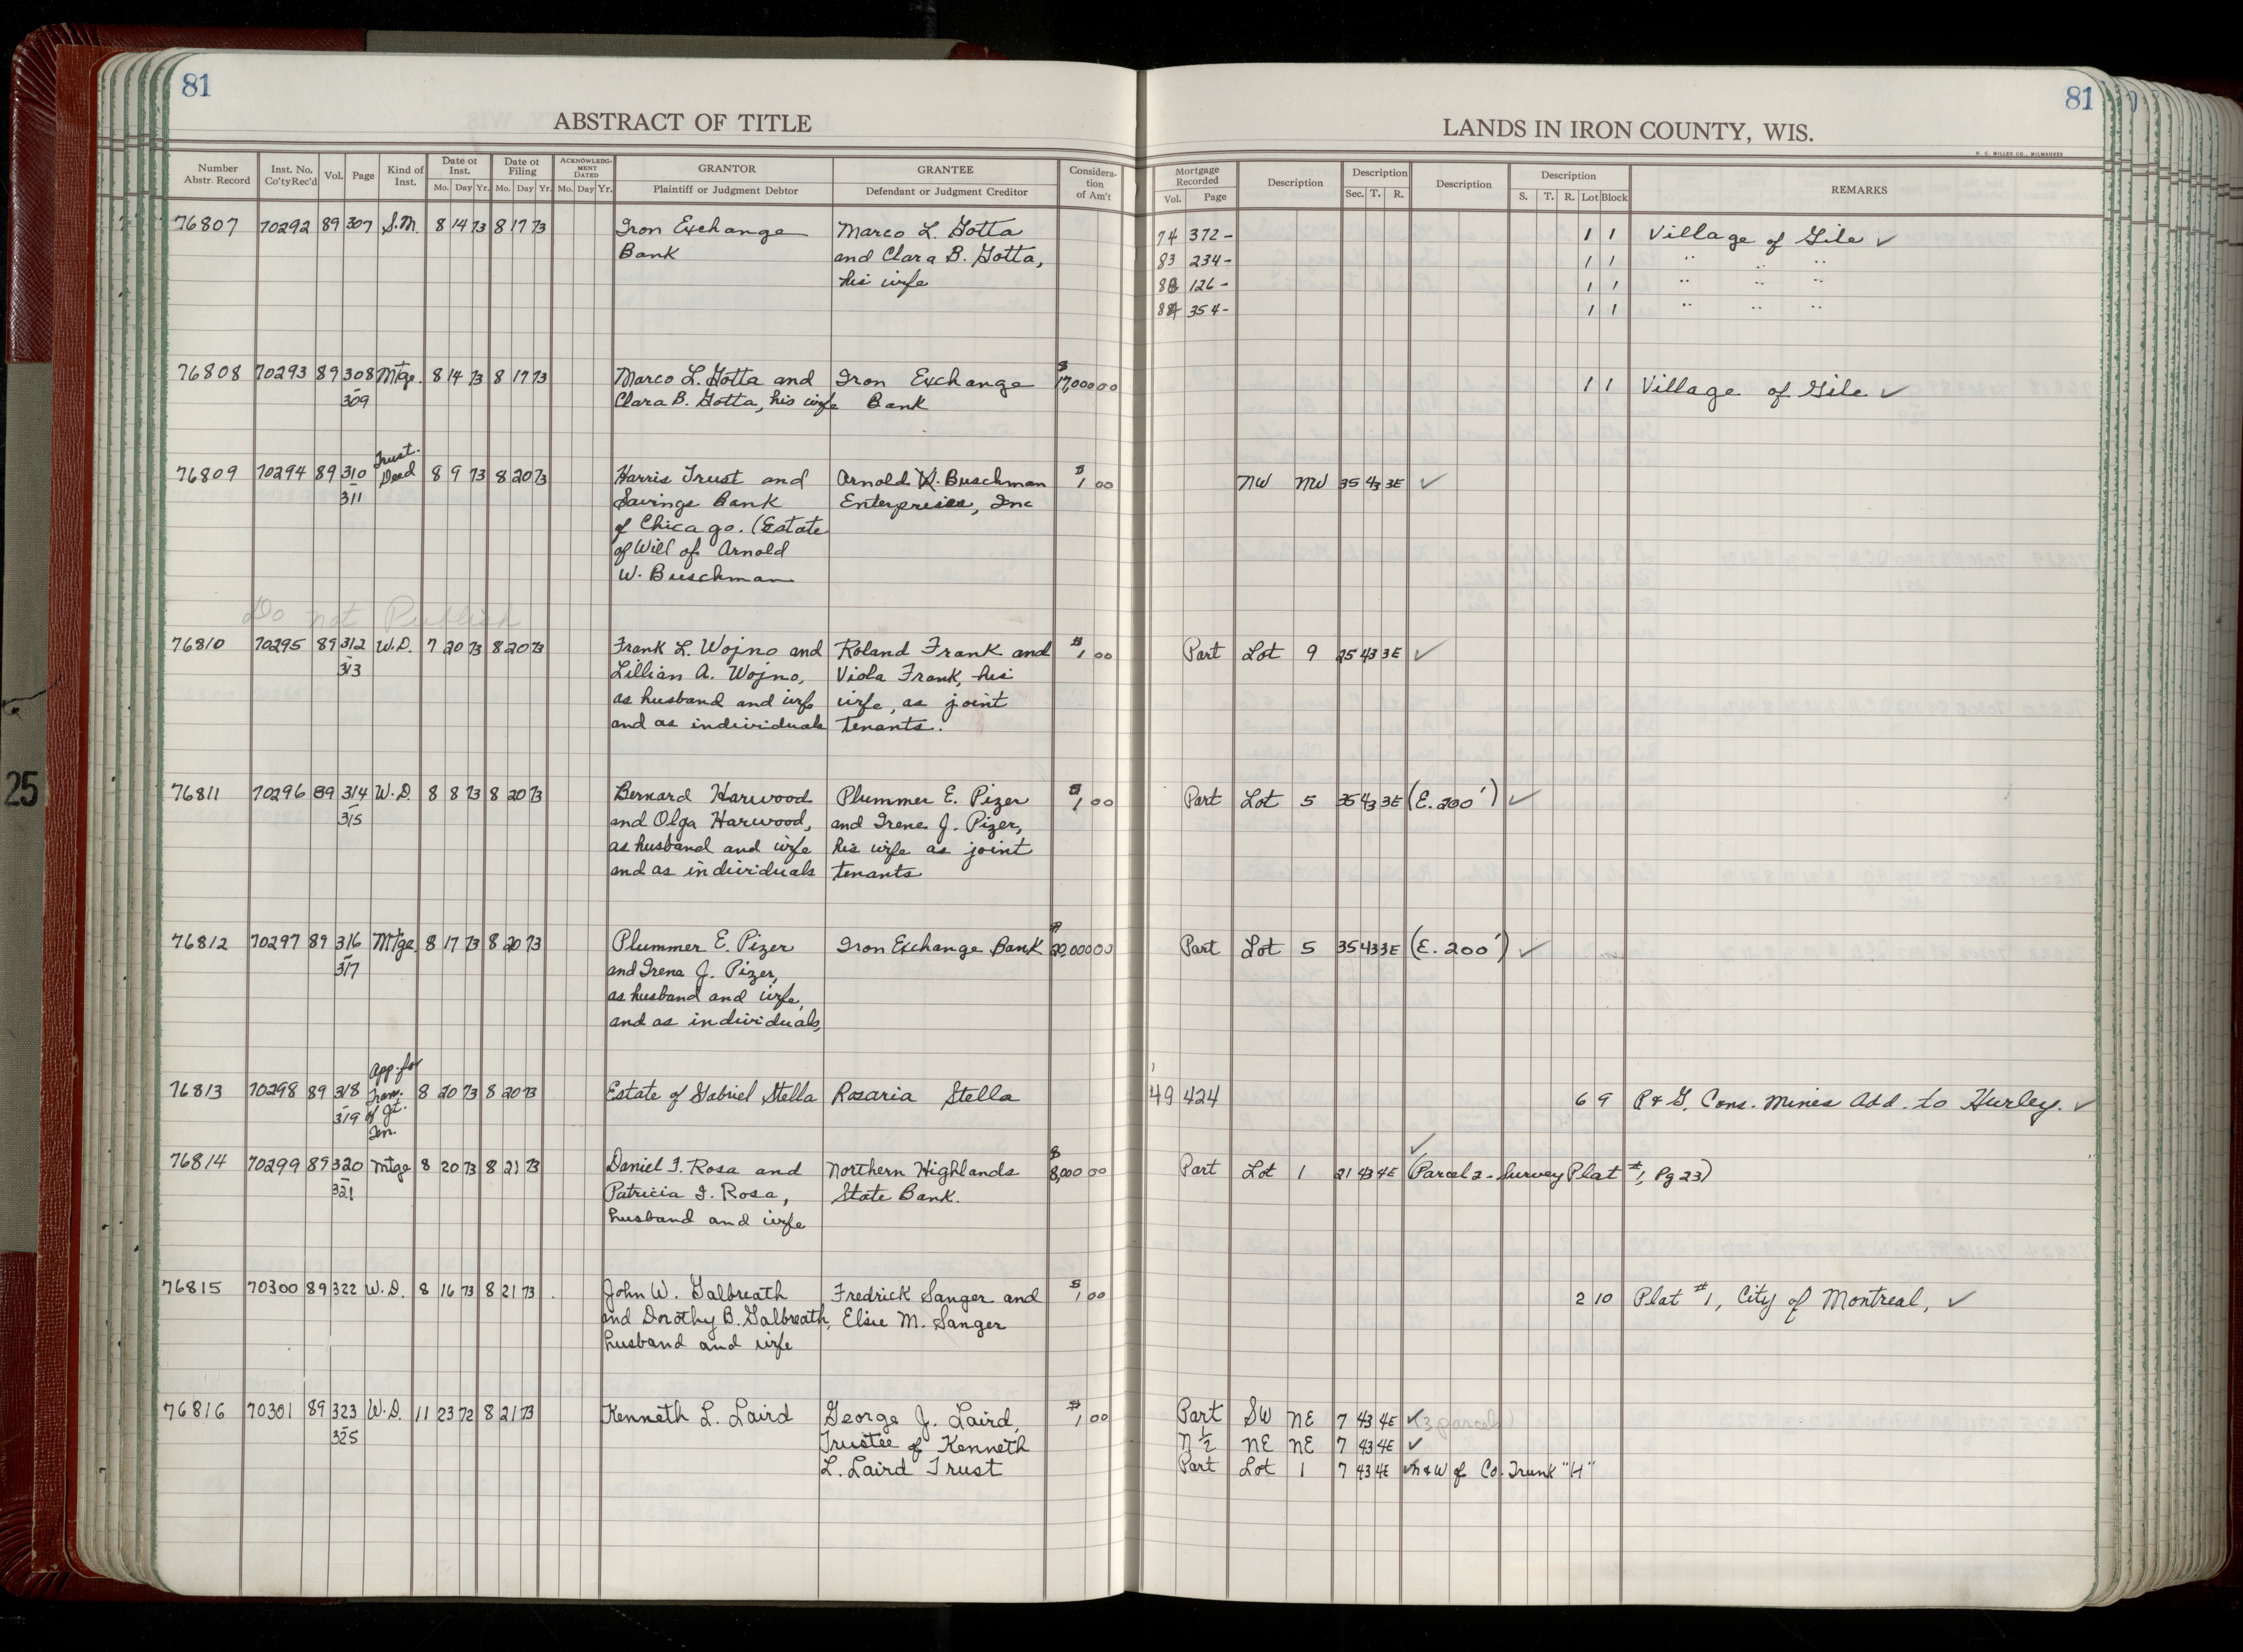 81
81
ABSTRACT OF TITLE
LANDS IN IRON COUNTY, WIS.
H. C. MILLER CO., MILWAUKEE
Number Abstr. Record | Inst. No. Co'ty Rec'd | Vol. | Page | Kind of Inst. | Date of Inst. Mo. Day Yr. | Date of Filing Mo. Day Yr. | ACKNOWLEDGMENT DATED Mo. Day Yr. | GRANTOR Plaintiff or Judgment Debtor | GRANTEE Defendant or Judgment Creditor | Consideration of Am't | Mortgage Recorded Vol. Page | Description | Description Sec. T. R. | Description | Description S. T. R. Lot Block | REMARKS
76807 70292 89 307 S.M. 8 14 73 8 17 73 Iron Exchange Marco L. Gotta 74 372- 1 1 Village of Gile ✓
Bank and Clara B. Gotta, 83 234- 1 1 " " "
his wife 83 126- 1 1 " " "
84 354- 1 1 " " "
76808 70293 89 308 Mtge. 8 14 73 8 17 73 Marco L. Gotta and Iron Exchange $17,000 00 1 1 Village of Gile ✓
-309 Clara B. Gotta, his wife Bank
Trust.
76809 70294 89 310 Deed 8 9 73 8 20 73 Harris Trust and Arnold W. Buschman $1 00 NW NW 35 43 3E ✓
-311 Savings Bank Enterprises, Inc
of Chicago. (Estate
of Will of Arnold
W. Buschman
Do not Publish
76810 70295 89 312 W.D. 7 20 73 8 20 73 Frank L. Wojno and Roland Frank and $1 00 Part Lot 9 25 43 3E ✓
-313 Lillian A. Wojno, Viola Frank, his
as husband and wife wife, as joint
and as individuals tenants.
76811 70296 89 314 W.D. 8 8 73 8 20 73 Bernard Harwood Plummer E. Pizer $1 00 Part Lot 5 35 43 3E (E. 200') ✓
-315 and Olga Harwood, and Irene J. Pizer,
as husband and wife his wife as joint
and as individuals tenants
76812 70297 89 316 Mtge. 8 17 73 8 20 73 Plummer E. Pizer Iron Exchange Bank $20,000 00 Part Lot 5 35 43 3E (E. 200') ✓
-317 and Irene J. Pizer,
as husband and wife,
and as individuals,
App. for
76813 70298 89 318 Tran. 8 20 73 8 20 73 Estate of Gabriel Stella Rosaria Stella 49 424 6 9 P & G. Cons. Mines Add. to Hurley. ✓
-319 of Jt.
Ten.
76814 70299 89 320 Mtge 8 20 73 8 21 73 Daniel I. Rosa and Northern Highlands $8,000 00 Part Lot 1 21 43 4E ✓ (Parcel 2 - Survey Plat #1, Pg 23)
-321 Patricia I. Rosa, State Bank.
husband and wife
76815 70300 89 322 W.D. 8 16 73 8 21 73 John W. Galbreath Fredrick Sanger and $1 00 2 10 Plat #1, City of Montreal, ✓
and Dorothy B. Galbreath, Elsie M. Sanger
husband and wife
76816 70301 89 323 W.D. 11 23 72 8 21 73 Kenneth L. Laird George J. Laird, $1 00 Part SW NE 7 43 4E ✓ (3 parcels)
-325 Trustee of Kenneth N ½ NE NE 7 43 4E ✓
L. Laird Trust Part Lot 1 7 43 4E ✓ N & W of Co. Trunk "H"
25